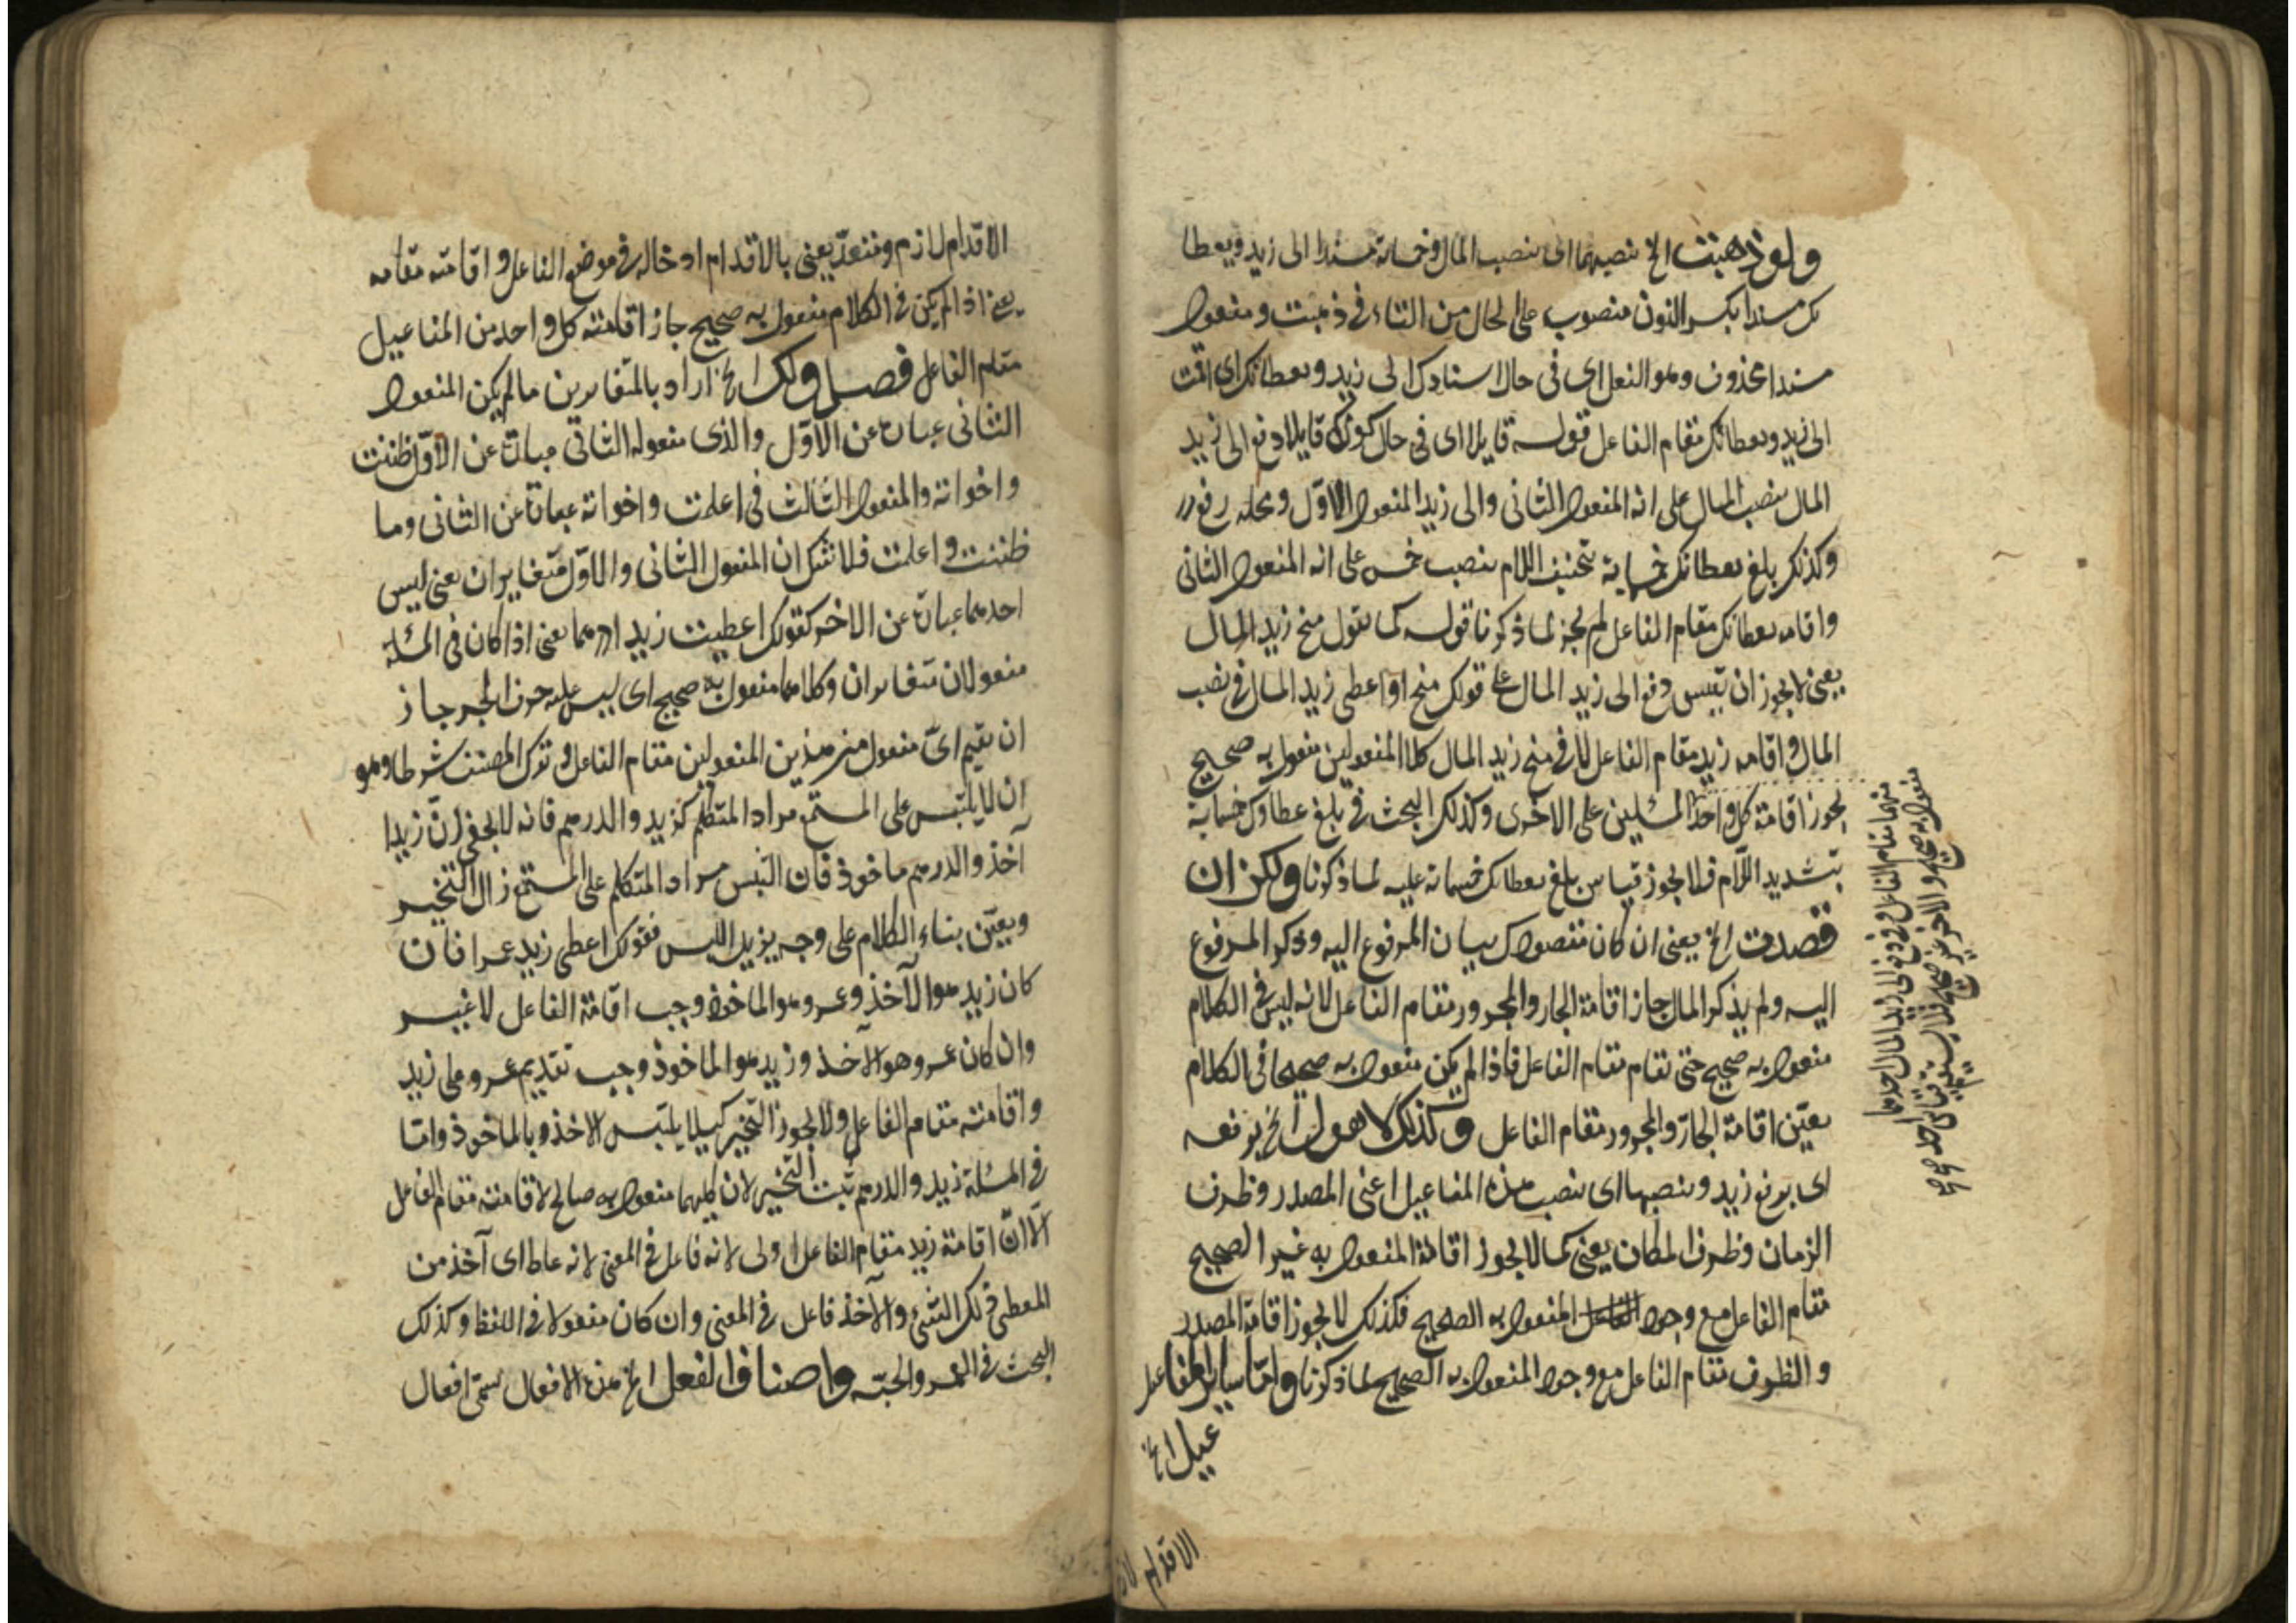 ولو ذهبت الخ تنصبهما اى بنصب المال وخمسمائة مسندا الى زيد وبعطا
ئك مسندا بكسر النون منصوب على الحال من التاء فى ذهبت ومفعول
مسندا محذوف وهو الفعل اى فى حال اسنادك الى زيد وبعطائك اى اقمت
الى زيد وبعطائك مقام الفاعل قوله قايلا اى فى حال كونك قايلا دفع الى زيد
المال بنصب المال على انه المفعول الثانى والى زيد المفعول الاول ومحله رفع
وكذلك بلغ بعطائك خمسمائة بتخفيف اللام بنصب خمس على انه المفعول الثانى
واقامه بعطائك مقام الفاعل لم يجز لما ذكرنا قوله كما تقول منح زيد المال
يعنى لا يجوز ان تقيس دفع الى زيد المال على قولك منح او اعطى زيد المال فى نصب
المال واقامه زيد مقام الفاعل لان فى منح زيد المال كلا المفعولين مفعول به صحيح
يجوز اقامة كل واحد المسئلين على الاخرى وكذلك البحث فى بلغ عطاؤك خمسمائة
بتشديد اللام فلا يجوز قياس بلغ بعطائك خمسمائة عليه لما ذكرنا ولكن ان
قصدت الخ يعنى ان كان مقصودك بيان المرفوع اليه وذكر المرفوع
اليه ولم يذكر المال جاز اقامة الجار والمجرور مقام الفاعل لانه ليس فى الكلام
مفعول به صحيح حتى تقام مقام الفاعل فاذا لم يكن مفعول به صحيحا فى الكلام
تعين اقامة الجار والمجرور مقام الفاعل وكذلك لا هول الخ برفعه
اى برفع زيد وبنصبها اى بنصب هذه المفاعيل اعنى المصدر وظرف
الزمان وظرف المكان يعنى كما لا يجوز اقامة المفعول به غير الصحيح
مقام الفاعل مع وجود الفاعل المفعول به الصحيح فكذلك لا يجوز اقامة المصدر
والظرف مقام الفاعل مع وجود المفعول به الصحيح لما ذكرنا واما ساير المفاعيل
عيل الخ
منهما مقام الفاعل وفى دفع الى زيد المال احدهما
مفعول به صحيح والاخر غير صحيح فلا يستقيم قياس احد
صح صح
الاقدام لازم
الاقدام لازم ومتعد يعنى بالاقدام ادخاله فى موضع الفاعل واقامته مقامه
يعنى اذا لم يكن فى الكلام مفعول به صحيح جاز اقامته كل واحد من المفاعيل
مقام الفاعل فصل ولك الخ اراد بالمتغايرين ما لم يكن المفعول
الثانى عبارة عن الاول والذى مفعوله الثانى عبارة عن الاول ظننت
واخواته والمفعول الثالث فى اعلمت واخواته عبارة عن الثانى وما
ظننت واعلمت فلا شك ان المفعول الثانى والاول متغايران يعنى ليس
احدهما عبارة عن الاخر كقولك اعطيت زيدا درهما يعنى اذا كان فى المسئلة
مفعولان متغايران وكلاهما مفعول به صحيح اى ليس عليه حرف الجر جاز
ان تقيم اى مفعول من هذين المفعولين مقام الفاعل وترك المصنف شرطا وهو
ان لا يلتبس على المستمع مراد المتكلم كزيد والدرهم فانه لا يخفى ان زيدا
آخذ والدرهم ماخوذ فان التبس مراد المتكلم على المستمع زال التخيير
وتعين بناء الكلام على وجه يزيل اللبس فقولك اعطى زيد عمرا فان
كان زيد هو الآخذ وعمرو هو الماخوذ وجب اقامة الفاعل لا غير
وان كان عمرو هو الآخذ وزيد هو الماخوذ وجب تقديم عمرو على زيد
واقامته مقام الفاعل ولا يجوز التخيير كيلا يلتبس الاخذ وبالماخوذ واما
فى المسئلة زيد والدرهم ثبت التخيير لان كليهما مفعول به صالح لاقامته مقام الفاعل
الا ان اقامة زيد مقام الفاعل اولى لانه فاعل فى المعنى لانه عاط اى آخذ من
المعطى ذلك الشئ والآخذ فاعل فى المعنى وان كان مفعولا فى اللفظ وكذلك
البحث فى العمرو الجبة واصناف الفعل الخ هذه الافعال تسمى افعال